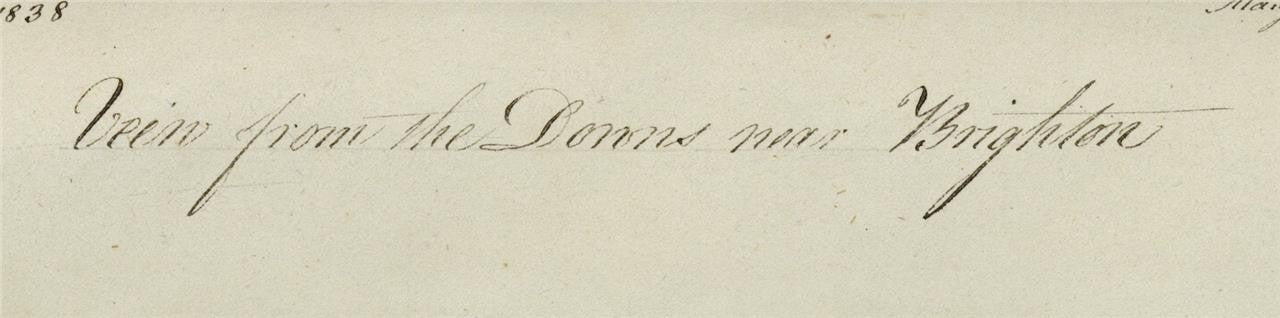 1838 May
Veiw from the Downs near Brighton